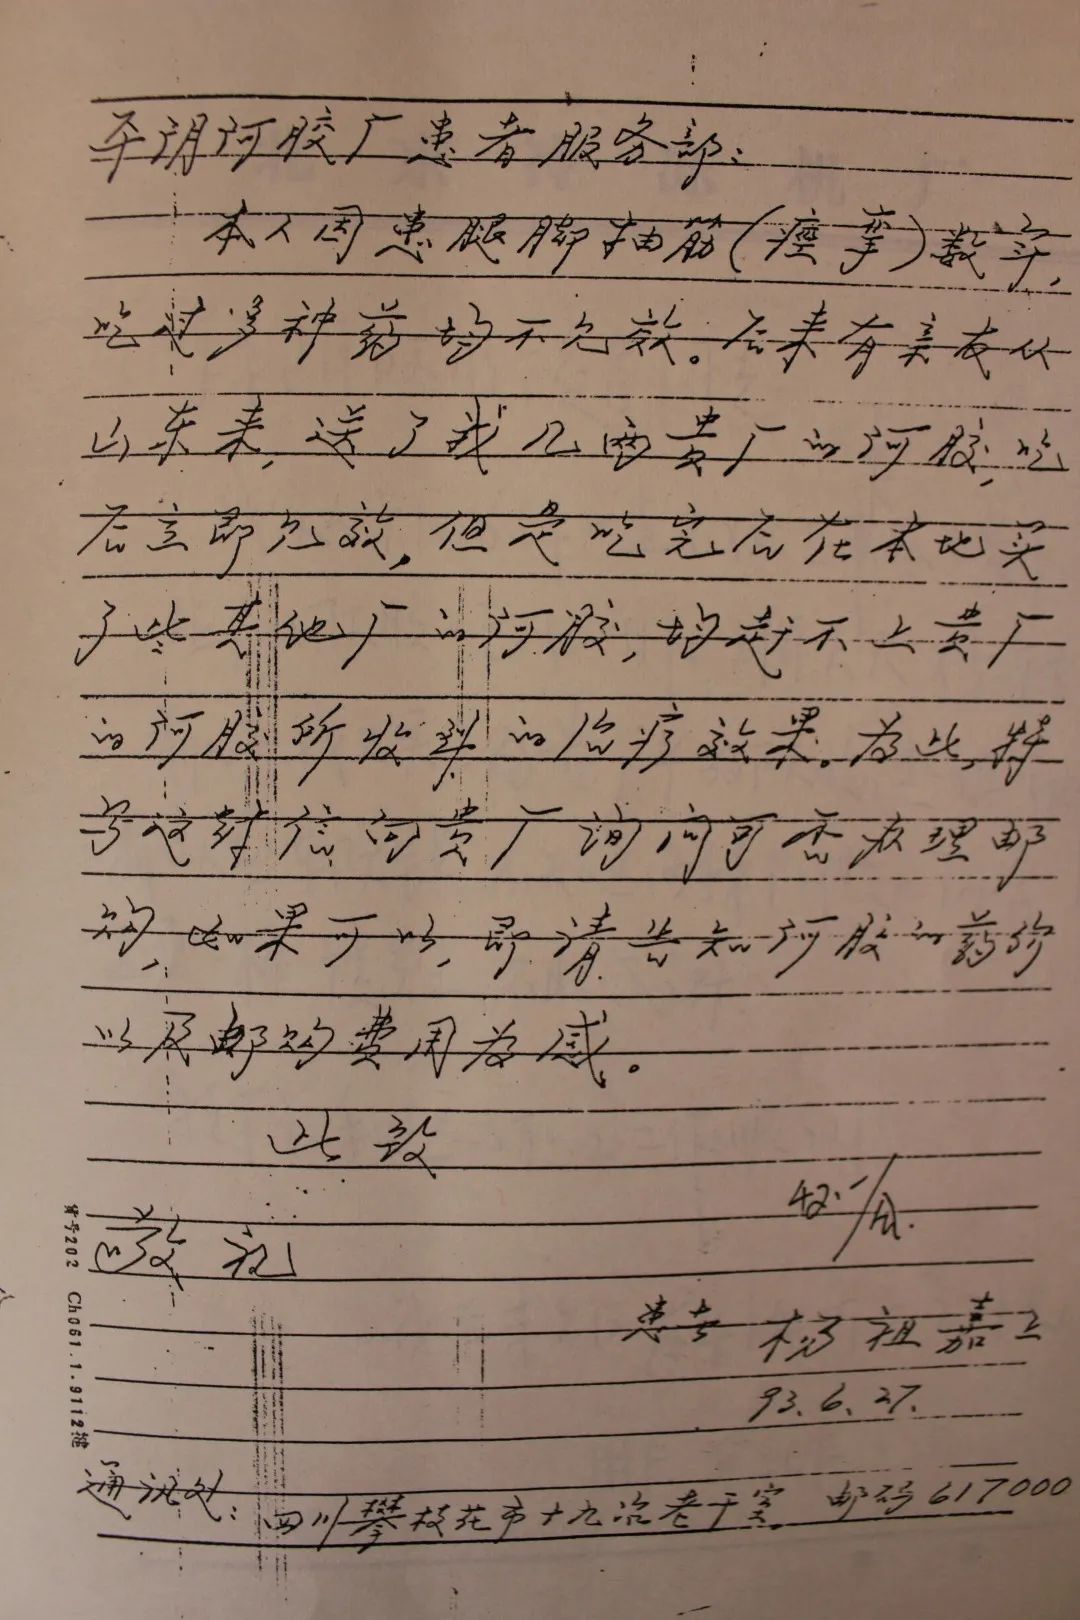 平阴阿胶厂患者服务部：
本人因患腿脚抽筋（痉挛）数年，
吃过多种药均不见效。后来有亲友从
山东来，送了我几两贵厂的阿胶，吃
后立即见效，但是吃完后在本地买
了些其他厂的阿胶，均赶不上贵厂
的阿胶所收到的治疗效果。为此，特
写这封信向贵厂询问可否办理邮
购，如果可以，即请告知阿胶的药价
以及邮购费用为感。
此致
42.1/
敬礼
患者 杨祖嘉上
93.6.27.
通讯处：四川攀枝花市十九冶老干室 邮码617000
货号202 Ch061.1.9112